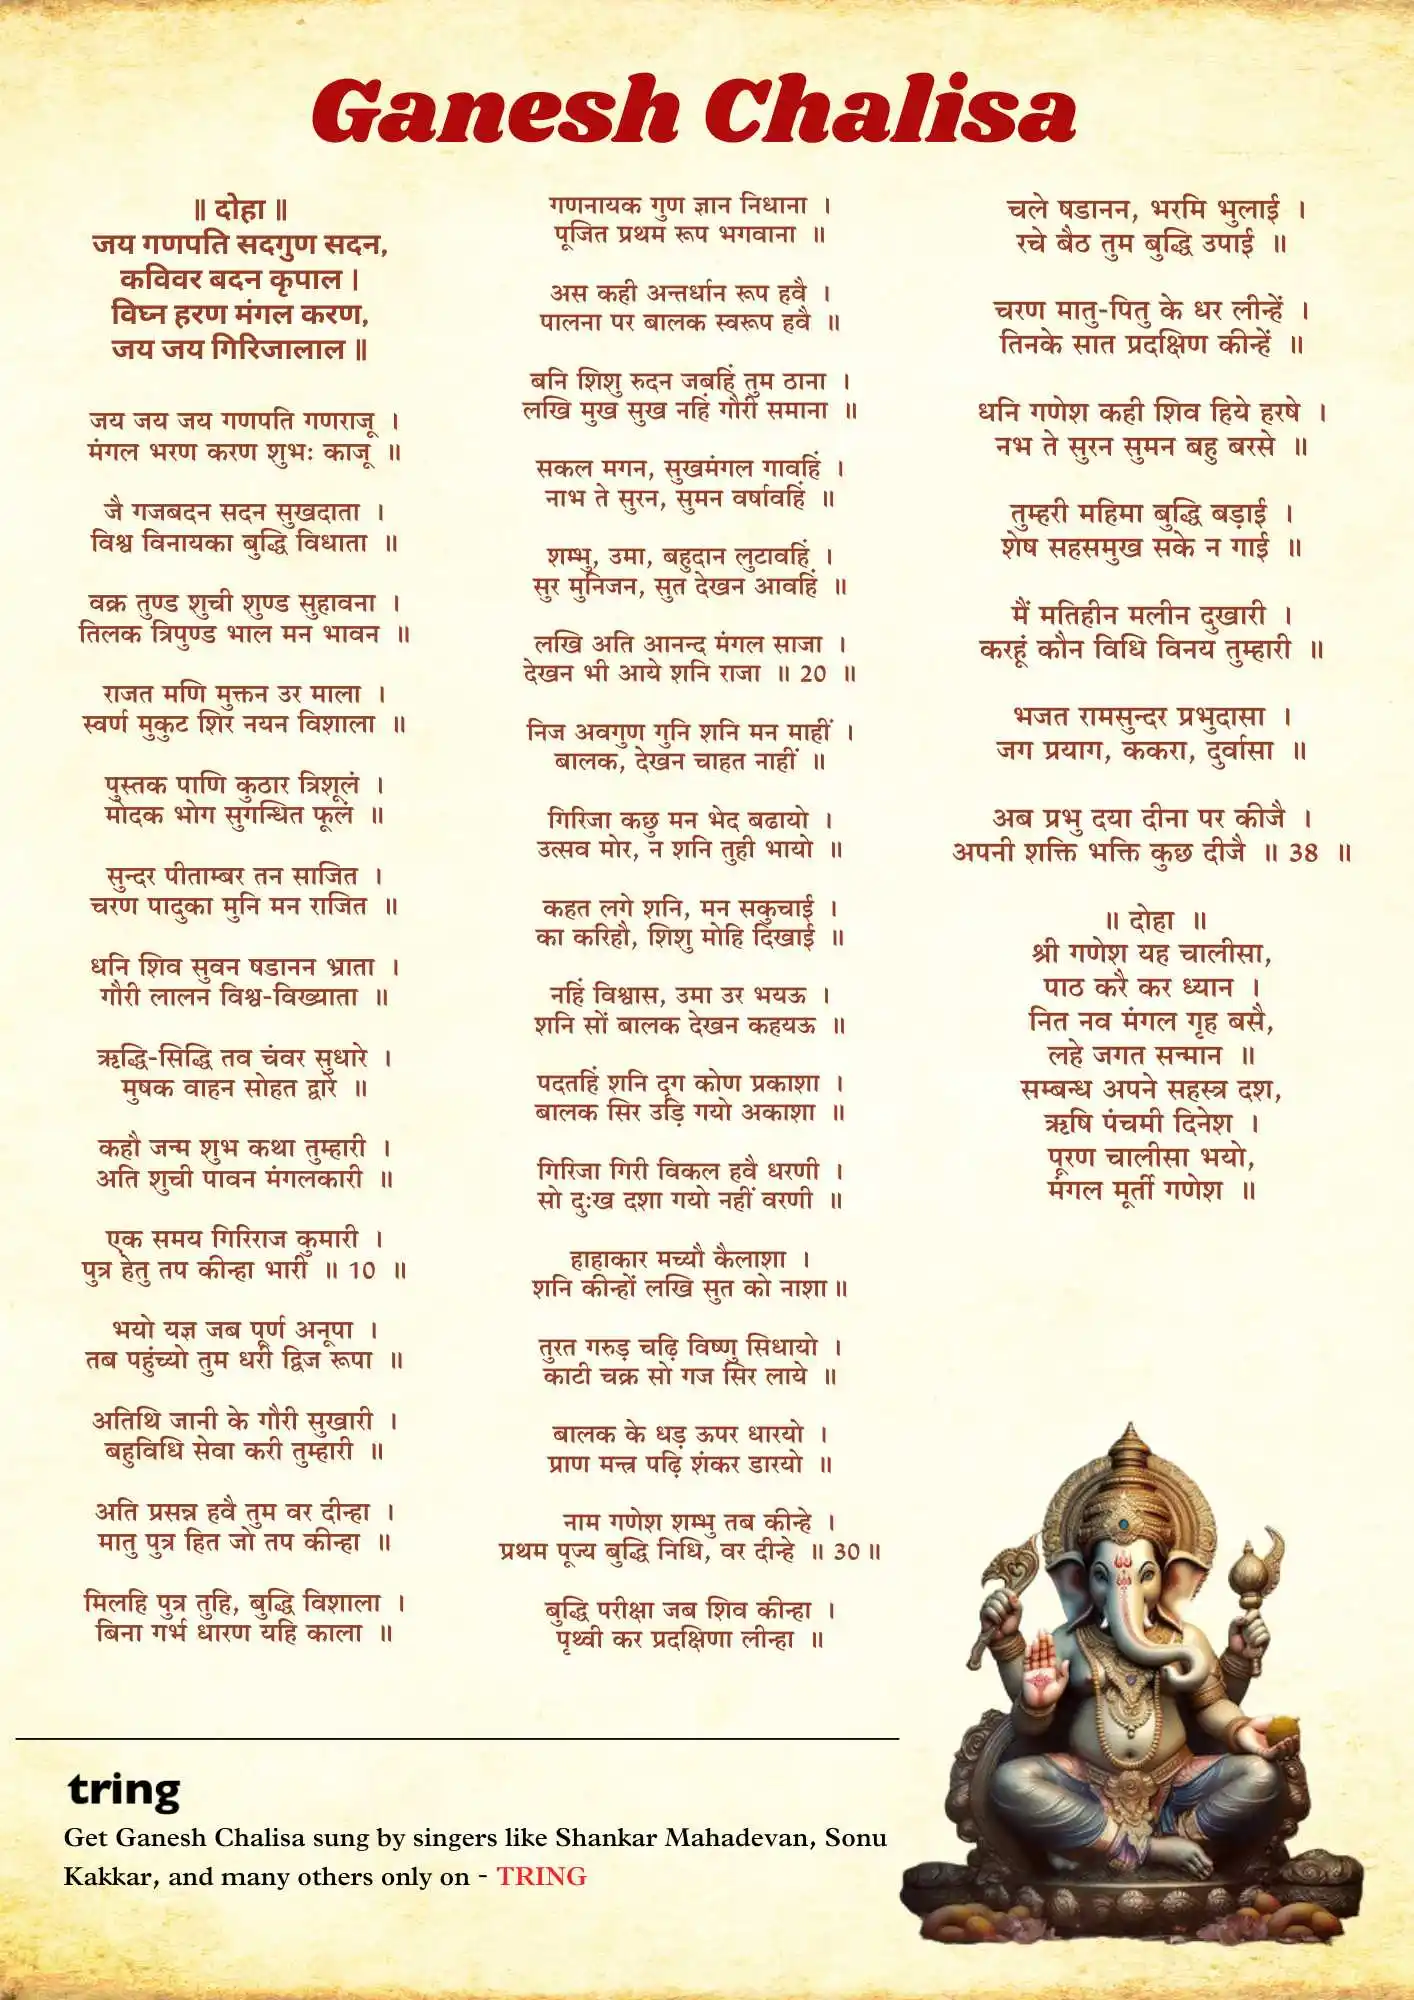 Ganesh Chalisa
॥ दोहा ॥
जय गणपति सदगुण सदन,
कविवर बदन कृपाल ।
विघ्न हरण मंगल करण,
जय जय गिरिजालाल ॥
जय जय जय गणपति गणराजू ।
मंगल भरण करण शुभः काजू ॥
जै गजबदन सदन सुखदाता ।
विश्व विनायका बुद्धि विधाता ॥
वक्र तुण्ड शुची शुण्ड सुहावना ।
तिलक त्रिपुण्ड भाल मन भावन ॥
राजत मणि मुक्तन उर माला ।
स्वर्ण मुकुट शिर नयन विशाला ॥
पुस्तक पाणि कुठार त्रिशूलं ।
मोदक भोग सुगन्धित फूलं ॥
सुन्दर पीताम्बर तन साजित ।
चरण पादुका मुनि मन राजित ॥
धनि शिव सुवन षडानन भ्राता ।
गौरी लालन विश्व-विख्याता ॥
ऋद्धि-सिद्धि तव चंवर सुधारे ।
मुषक वाहन सोहत द्वारे ॥
कहौ जन्म शुभ कथा तुम्हारी ।
अति शुची पावन मंगलकारी ॥
एक समय गिरिराज कुमारी ।
पुत्र हेतु तप कीन्हा भारी ॥ 10 ॥
भयो यज्ञ जब पूर्ण अनूपा ।
तब पहुंच्यो तुम धरी द्विज रूपा ॥
अतिथि जानी के गौरी सुखारी ।
बहुविधि सेवा करी तुम्हारी ॥
अति प्रसन्न हवै तुम वर दीन्हा ।
मातु पुत्र हित जो तप कीन्हा ॥
मिलहि पुत्र तुहि, बुद्धि विशाला ।
बिना गर्भ धारण यहि काला ॥
गणनायक गुण ज्ञान निधाना ।
पूजित प्रथम रूप भगवाना ॥
अस कही अन्तर्धान रूप हवै ।
पालना पर बालक स्वरूप हवै ॥
बनि शिशु रुदन जबहिं तुम ठाना ।
लखि मुख सुख नहिं गौरी समाना ॥
सकल मगन, सुखमंगल गावहिं ।
नाभ ते सुरन, सुमन वर्षावहिं ॥
शम्भु, उमा, बहुदान लुटावहिं ।
सुर मुनिजन, सुत देखन आवहिं ॥
लखि अति आनन्द मंगल साजा ।
देखन भी आये शनि राजा ॥ 20 ॥
निज अवगुण गुनि शनि मन माहीं ।
बालक, देखन चाहत नाहीं ॥
गिरिजा कछु मन भेद बढायो ।
उत्सव मोर, न शनि तुही भायो ॥
कहत लगे शनि, मन सकुचाई ।
का करिहौ, शिशु मोहि दिखाई ॥
नहिं विश्वास, उमा उर भयऊ ।
शनि सों बालक देखन कहयऊ ॥
पदतहिं शनि दृग कोण प्रकाशा ।
बालक सिर उड़ि गयो अकाशा ॥
गिरिजा गिरी विकल हवै धरणी ।
सो दुःख दशा गयो नहीं वरणी ॥
हाहाकार मच्यौ कैलाशा ।
शनि कीन्हों लखि सुत को नाशा ॥
तुरत गरुड़ चढ़ि विष्णु सिधायो ।
काटी चक्र सो गज सिर लाये ॥
बालक के धड़ ऊपर धारयो ।
प्राण मन्त्र पढ़ि शंकर डारयो ॥
नाम गणेश शम्भु तब कीन्हे ।
प्रथम पूज्य बुद्धि निधि, वर दीन्हे ॥ 30 ॥
बुद्धि परीक्षा जब शिव कीन्हा ।
पृथ्वी कर प्रदक्षिणा लीन्हा ॥
चले षडानन, भरमि भुलाई ।
रचे बैठ तुम बुद्धि उपाई ॥
चरण मातु-पितु के धर लीन्हें ।
तिनके सात प्रदक्षिण कीन्हें ॥
धनि गणेश कही शिव हिये हरषे ।
नभ ते सुरन सुमन बहु बरसे ॥
तुम्हरी महिमा बुद्धि बड़ाई ।
शेष सहसमुख सके न गाई ॥
मैं मतिहीन मलीन दुखारी ।
करहूं कौन विधि विनय तुम्हारी ॥
भजत रामसुन्दर प्रभुदासा ।
जग प्रयाग, ककरा, दुर्वासा ॥
अब प्रभु दया दीना पर कीजै ।
अपनी शक्ति भक्ति कुछ दीजै ॥ 38 ॥
॥ दोहा ॥
श्री गणेश यह चालीसा,
पाठ करै कर ध्यान ।
नित नव मंगल गृह बसै,
लहे जगत सन्मान ॥
सम्बन्ध अपने सहस्त्र दश,
ऋषि पंचमी दिनेश ।
पूरण चालीसा भयो,
मंगल मूर्ती गणेश ॥
tring
Get Ganesh Chalisa sung by singers like Shankar Mahadevan, Sonu
Kakkar, and many others only on - TRING